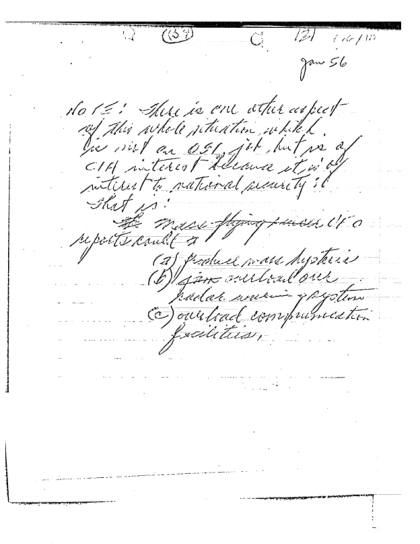 (153) C (2)
Jan 56
NOTE: There is one other aspect
of this whole situation which
is not an OSI job, but is of
CIA interest because it is of
interest to national security:
That is:
The mass flying saucer UFO
reports could
(a) produce mass hysteria
(b) jam overload our
radar warning system
(c) overload communication
facilities.